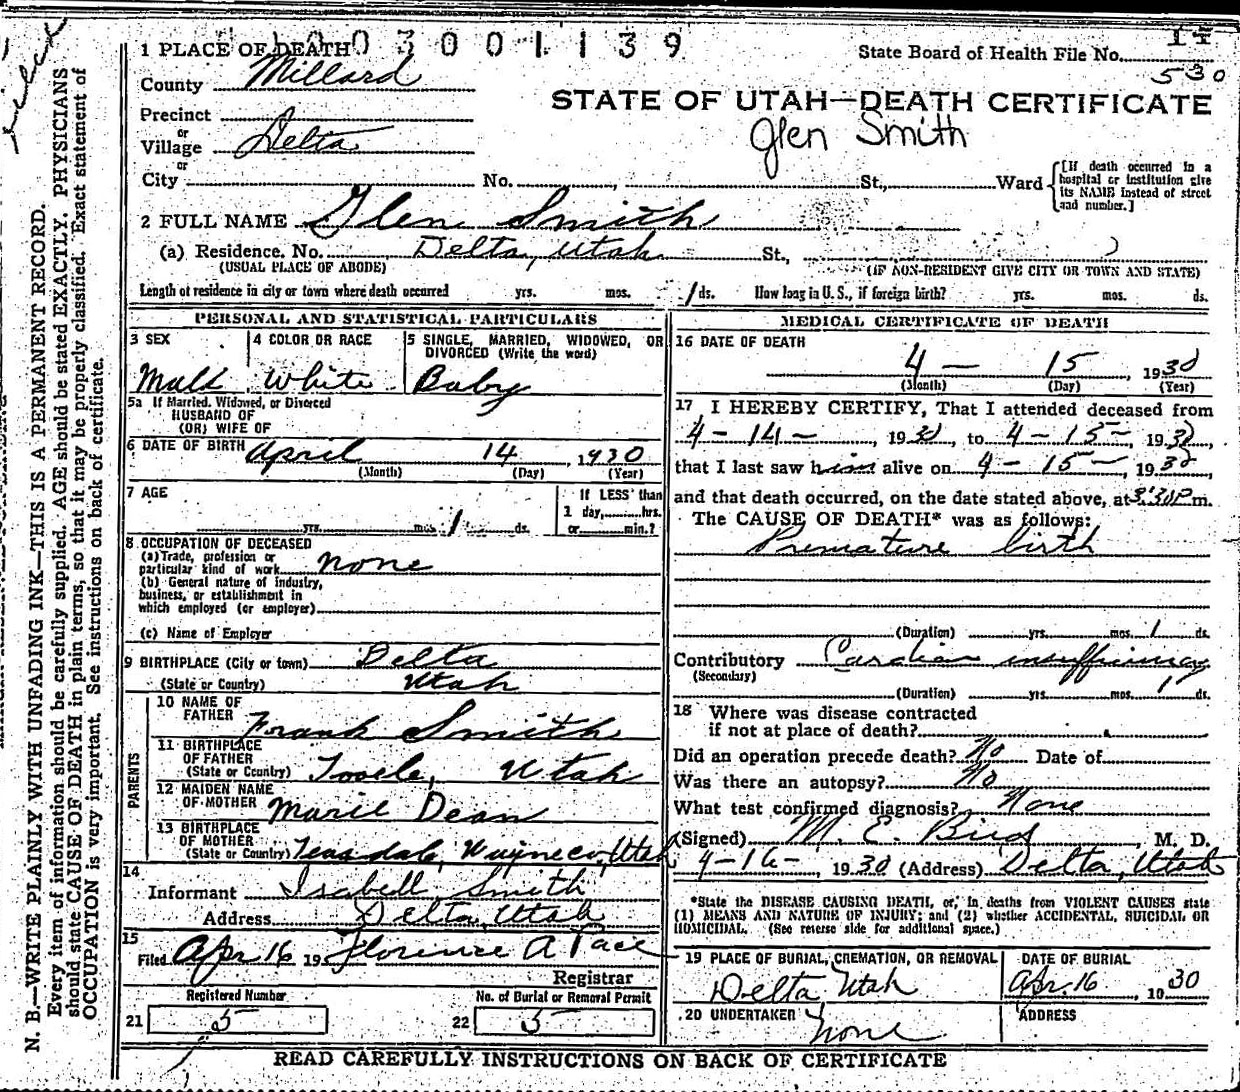 1 PLACE OF DEATH
003001139
State Board of Health File No.
530
County Millard
STATE OF UTAH—DEATH CERTIFICATE
Glen Smith
Precinct
or
Village Delta
or
City No. , St., Ward
[If death occurred in a hospital or institution give its NAME instead of street and number.]
2 FULL NAME Glen Smith
(a) Residence. No. Delta, Utah St.,
(USUAL PLACE OF ABODE) (IF NON-RESIDENT GIVE CITY OR TOWN AND STATE)
Length of residence in city or town where death occurred yrs. mos. 1 ds. How long in U. S., if foreign birth? yrs. mos. ds.
PERSONAL AND STATISTICAL PARTICULARS
3 SEX
Male
4 COLOR OR RACE
White
5 SINGLE, MARRIED, WIDOWED, OR
DIVORCED (Write the word)
Baby
5a If Married, Widowed, or Divorced
HUSBAND OF
(OR) WIFE OF
6 DATE OF BIRTH April 14, 1930
(Month) (Day) (Year)
7 AGE
yrs. mos. 1 ds.
If LESS than
1 day, hrs.
or min.?
8 OCCUPATION OF DECEASED
(a) Trade, profession or
particular kind of work none
(b) General nature of industry,
business, or establishment in
which employed (or employer)
(c) Name of Employer
9 BIRTHPLACE (City or town) Delta
(State or Country) Utah
PARENTS
10 NAME OF
FATHER Frank Smith
11 BIRTHPLACE
OF FATHER
(State or Country) Tooele, Utah
12 MAIDEN NAME
OF MOTHER Marie Dean
13 BIRTHPLACE
OF MOTHER
(State or Country) Teasdale, Wayne co, Utah
14
Informant Isabell Smith
Address Delta, Utah
15
Filed Apr 16 19 Florence A Pace
Registrar
Registered Number
21 5
No. of Burial or Removal Permit
22 5
MEDICAL CERTIFICATE OF DEATH
16 DATE OF DEATH
4 — 15 1930
(Month) (Day) (Year)
17 I HEREBY CERTIFY, That I attended deceased from
4-14-, 1930, to 4-15-, 1930,
that I last saw him alive on 4-15-, 1930,
and that death occurred, on the date stated above, at 3:30P m.
The CAUSE OF DEATH* was as follows:
Premature birth
(Duration) yrs. mos. 1 ds.
Contributory Cardiac insufficiency
(Secondary)
(Duration) yrs. mos. 1 ds.
18 Where was disease contracted
if not at place of death?
Did an operation precede death? No Date of
Was there an autopsy? No
What test confirmed diagnosis? None
(Signed) M. E. Bird, M. D.
4-16-, 1930 (Address) Delta, Utah
*State the DISEASE CAUSING DEATH, or, in deaths from VIOLENT CAUSES state
(1) MEANS AND NATURE OF INJURY; and (2) whether ACCIDENTAL, SUICIDAL OR
HOMICIDAL. (See reverse side for additional space.)
19 PLACE OF BURIAL, CREMATION, OR REMOVAL
Delta, Utah
DATE OF BURIAL
Apr. 16, 1930
20 UNDERTAKER
none
ADDRESS
READ CAREFULLY INSTRUCTIONS ON BACK OF CERTIFICATE
N. B.—WRITE PLAINLY WITH UNFADING INK—THIS IS A PERMANENT RECORD.
Every item of information should be carefully supplied. AGE should be stated EXACTLY. PHYSICIANS
should state CAUSE OF DEATH in plain terms, so that it may be properly classified. Exact statement of
OCCUPATION is very important. See instructions on back of certificate.